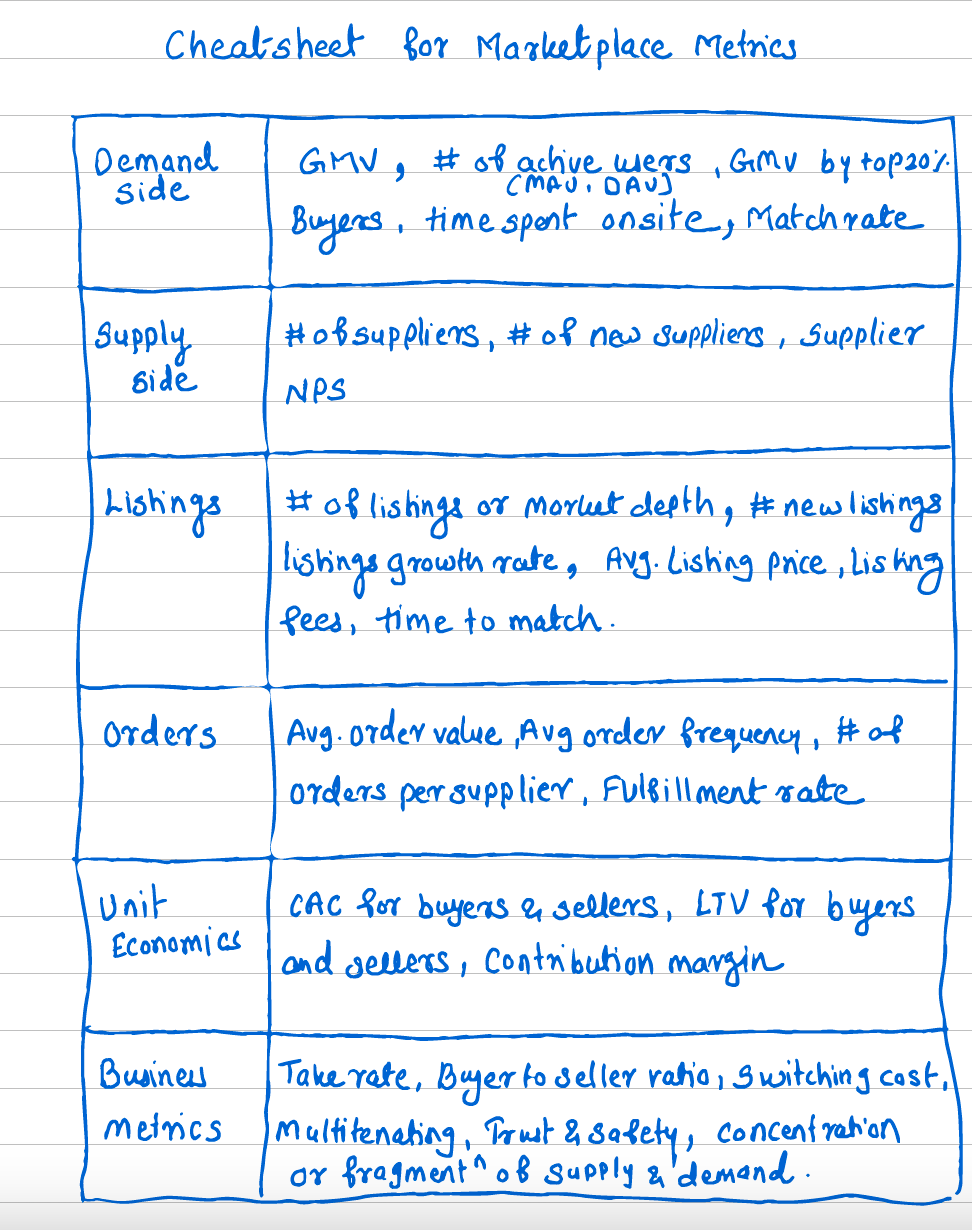 Cheat-sheet for Marketplace Metrics
Demand side
GMV, # of active users, GMV by top 20%
(MAU, DAU)
Buyers, time spent onsite, Match rate
Supply side
# of suppliers, # of new suppliers, Supplier
NPS
Listings
# of listings or market depth, # new listings
listings growth rate, Avg. Listing price, Listing
fees, time to match.
Orders
Avg. order value, Avg order frequency, # of
orders per supplier, Fulfillment rate
Unit Economics
CAC for buyers & sellers, LTV for buyers
and sellers, Contribution margin
Business metrics
Take rate, Buyer to seller ratio, Switching cost,
Multitenating, Trust & safety, concentration
or fragmentⁿ of supply & demand.